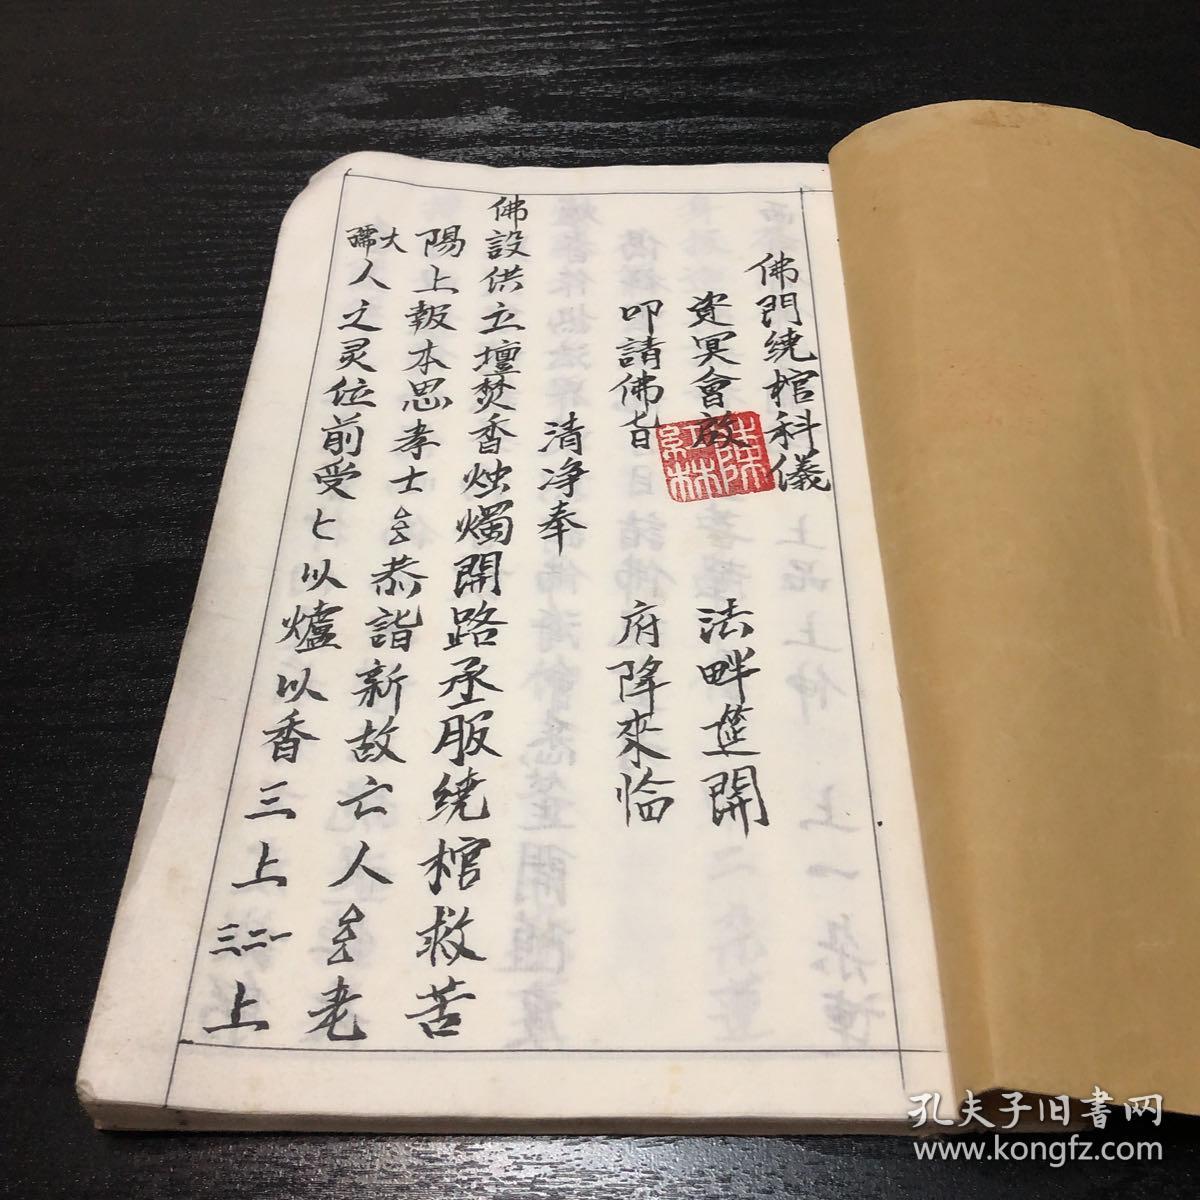 佛門绕棺科儀
资冥會啟 法畔莚開
叩請佛旨 府降來临
清净奉
佛設供立壇焚香烛燭開路丞服绕棺救苦
陽上報本思孝士厶厶恭詣新故亡人厶厶老
大孺人之灵位前受匕以爐以香三上一二三上
孔夫子旧書网
www.kongfz.com